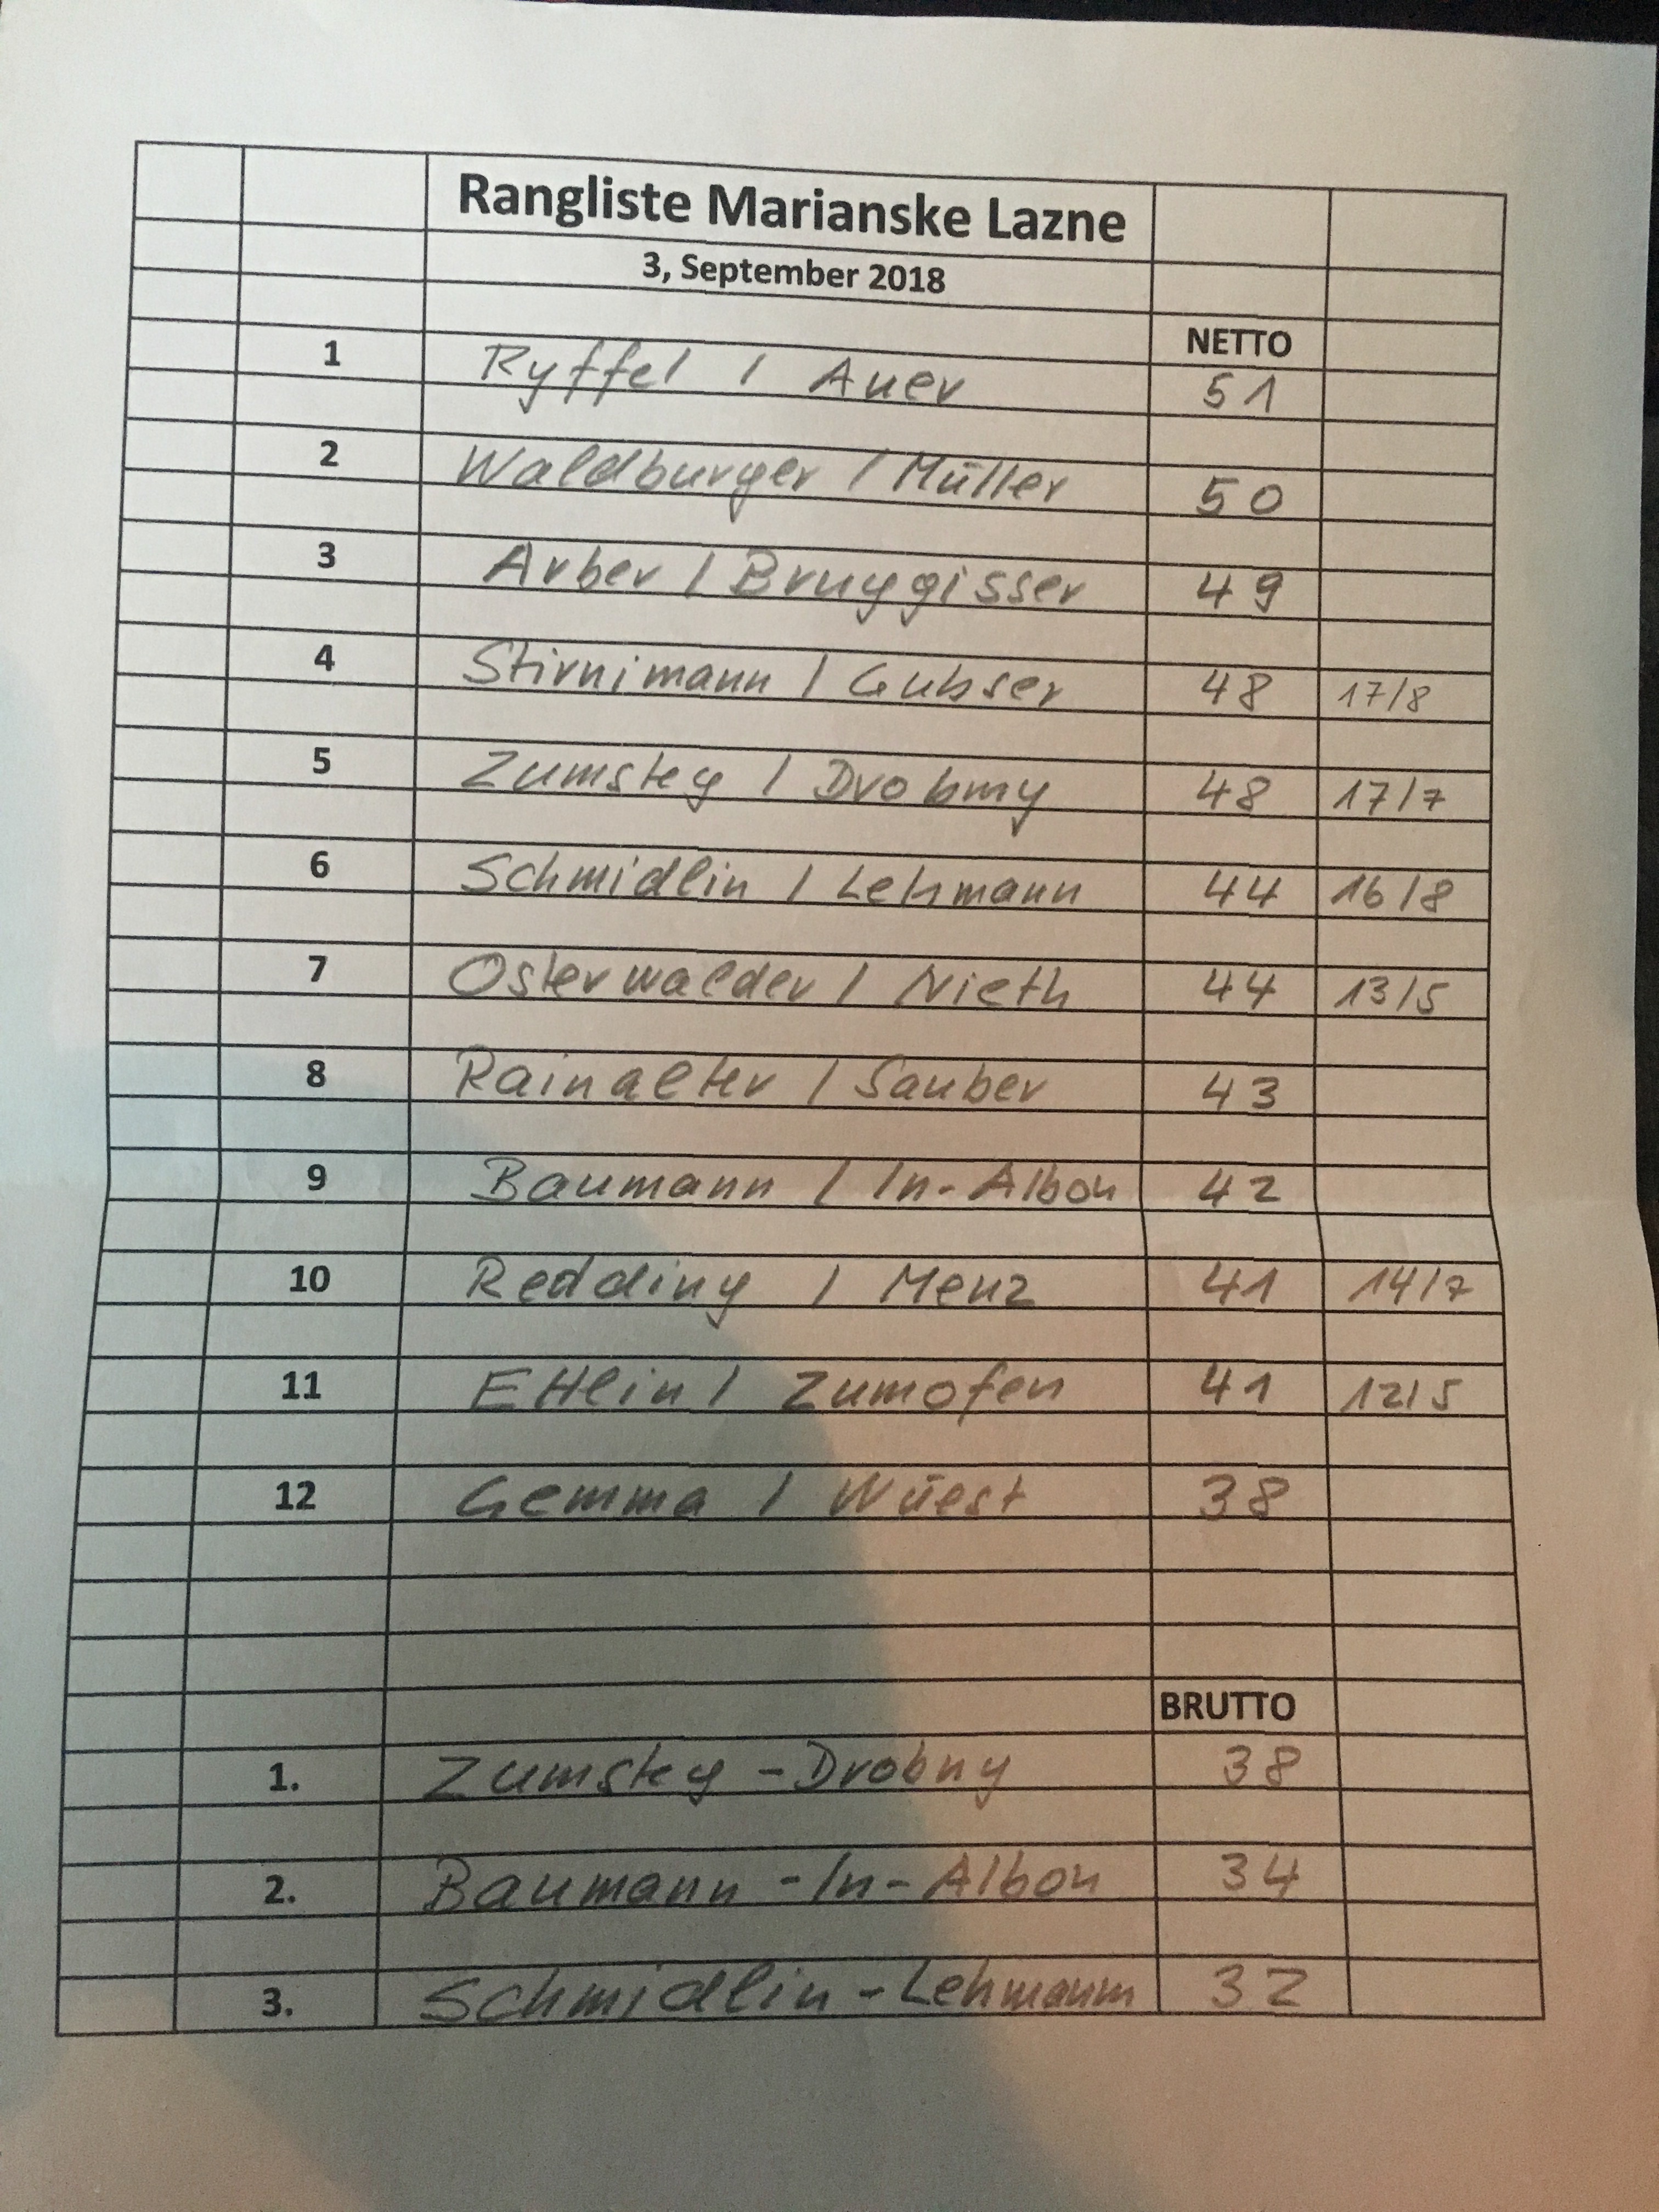 Rangliste Marianske Lazne
3, September 2018
NETTO
1 Ryffel / Auer 51
2 Waldburger / Müller 50
3 Arber / Bruggisser 49
4 Stirnimann / Gubser 48 17/8
5 Zumsteg / Drobny 48 17/7
6 Schmidlin / Lehmann 44 16/8
7 Osterwalder / Nieth 44 13/5
8 Rainalter / Sauber 43
9 Baumann / In-Albon 42
10 Redding / Menz 41 14/7
11 Ettlin / Zumofen 41 12/5
12 Gemma / Wüest 38
BRUTTO
1. Zumsteg - Drobny 38
2. Baumann - In-Albon 34
3. Schmidlin - Lehmann 32